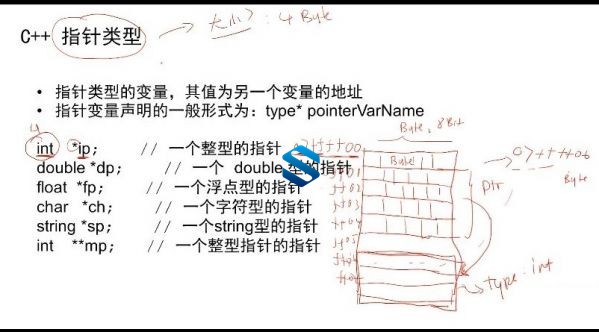 C++ 指针类型
大小?: 4 Byte
• 指针类型的变量，其值为另一个变量的地址
• 指针变量声明的一般形式为：type* pointerVarName
4
int *ip; // 一个整型的指针
double *dp; // 一个 double 型的指针
float *fp; // 一个浮点型的指针
char *ch; // 一个字符型的指针
string *sp; // 一个string型的指针
int **mp; // 一个整型指针的指针
Byte, 8Bit
Byte
Ptr
Byte
type: int